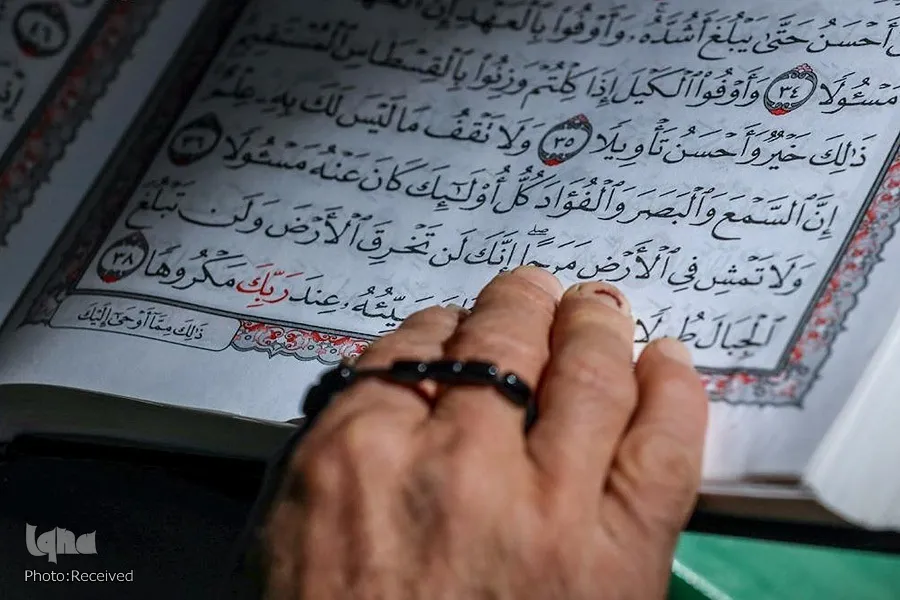 أَحْسَنُ حَتَّىٰ يَبْلُغَ أَشُدَّهُۥ وَأَوْفُوا۟ بِٱلْعَهْدِ إِنَّ
مَسْـُٔولًا ٣٤ وَأَوْفُوا۟ ٱلْكَيْلَ إِذَا كِلْتُمْ وَزِنُوا۟ بِٱلْقِسْطَاسِ ٱلْمُسْتَقِيمِ
ذَٰلِكَ خَيْرٌ وَأَحْسَنُ تَأْوِيلًا ٣٥ وَلَا تَقْفُ مَا لَيْسَ لَكَ بِهِۦ عِلْمٌ
إِنَّ ٱلسَّمْعَ وَٱلْبَصَرَ وَٱلْفُؤَادَ كُلُّ أُو۟لَـٰٓئِكَ كَانَ عَنْهُ مَسْـُٔولًا ٣٦
وَلَا تَمْشِ فِى ٱلْأَرْضِ مَرَحًا ۖ إِنَّكَ لَن تَخْرِقَ ٱلْأَرْضَ وَلَن تَبْلُغَ
ٱلْجِبَالَ طُولًا سَيِّئُهُۥ عِندَ رَبِّكَ مَكْرُوهًا ٣٨
ذَٰلِكَ مِمَّآ أَوْحَىٰٓ إِلَيْكَ
Iqna
Photo:Received